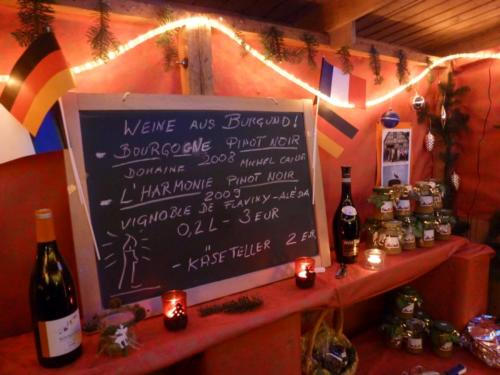 WEINE AUS BURGUND!
- BOURGOGNE PINOT NOIR
DOMAINE 2008 MICHEL
- L'HARMONIE PINOT NOIR
2009
VIGNOBLE DE FLAVINY-ALÉSIA
0,2L - 3 EUR
- KÄSETELLER 2 EUR